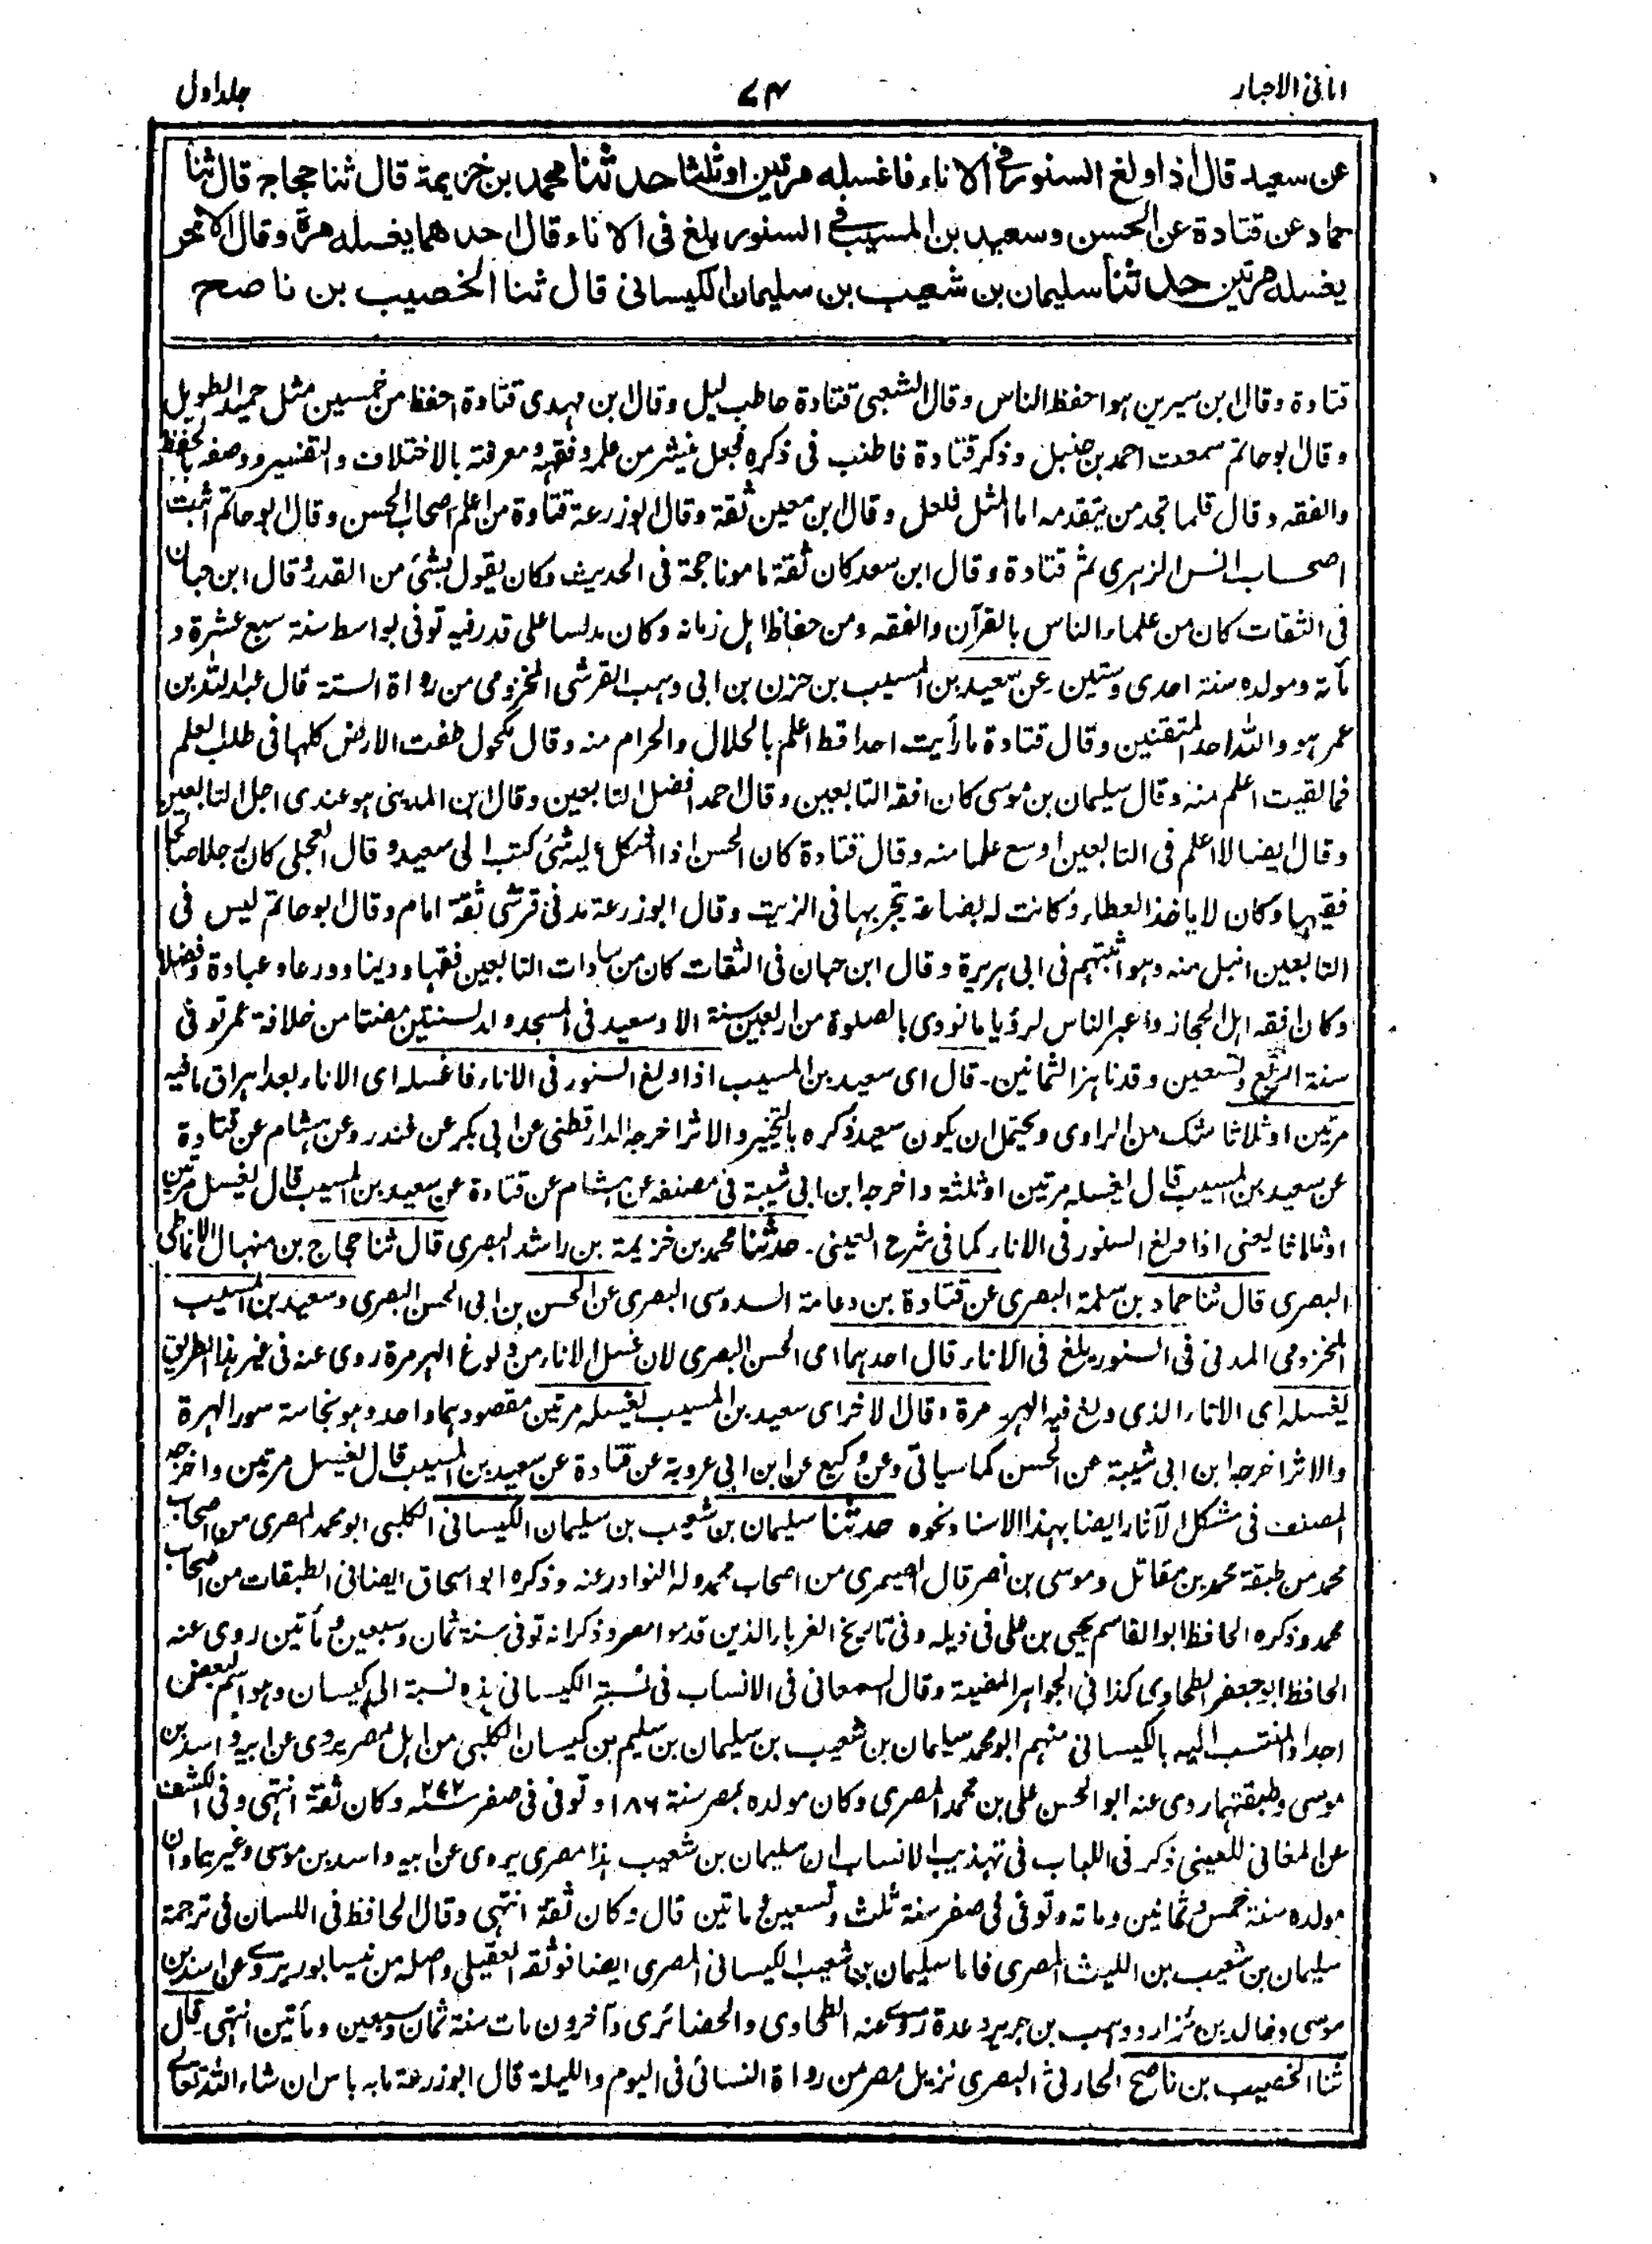 امانی الاحبار
۷۴
جلد اول
عن سعید قال اذا ولغ السنور فی الاناء فاغسله مرتین او ثلثا حدثنا محمد بن خزیمة قال ثنا حجاج قال ثنا
حماد عن قتادة عن الحسن وسعید بن المسیب فی السنور یلغ فی الاناء قال احدهما یغسله مرة وقال الاخر
یغسله مرتین حدثنا سلیمان بن شعیب بن سلیمان الکیسانی قال ثنا الخصیب بن ناصح
قتادة وقال ابن سیرین ہو احفظ الناس وقال الشعبی قتادة حاطب لیل وقال ابن مہدی قتادة احفظ من خمسین مثل حمید الطویل
وقال ابو حاتم سمعت احمد بن حنبل وذکر قتادة فاطنب فی ذکرہ فجعل ینشر من علمہ وفقہہ ومعرفتہ بالاختلاف والتفسیر ووصفہ بالحفظ
والفقہ وقال قلما تجد من یتقدمہ اما المثل فلعل وقال ابن معین ثقة وقال ابو زرعة قتادة من اعلم اصحاب الحسن وقال ابو حاتم اثبت
اصحاب انس الزہری ثم قتادة وقال ابن سعد کان ثقة مامونا حجة فی الحدیث وکان یقول بشئ من القدر وقال ابن حبان
فی الثقات کان من علماء الناس بالقرآن والفقہ ومن حفاظ اہل زمانہ وکان مدلسا علی قدر فیہ توفی بواسط سنة سبع عشرة و
مأتہ ومولدہ سنة احدی وستین عن سعید بن المسیب بن حزن بن ابی وہب القرشی المخزومی من رواة الستة قال عبد اللہ بن
عمر ہو واللہ احد المتقنین وقال قتادة ما رأیت احدا قط اعلم بالحلال والحرام منہ وقال مکحول طفت الارض کلہا فی طلب العلم
فما لقیت اعلم منہ وقال سلیمان بن موسی کان افقہ التابعین وقال احمد افضل التابعین وقال ابن المدینی ہو عندی اجل التابعین
وقال ایضا لا اعلم فی التابعین اوسع علما منہ وقال قتادة کان الحسن اذا اشکل علیہ شئ کتب الی سعید وقال العجلی کان رجلا صالحا
فقیہا وکان لا یاخذ العطاء وکانت لہ بضاعة یتجر بہا فی الزیت وقال ابو زرعة مدنی قرشی ثقة امام وقال ابو حاتم لیس فی
التابعین انبل منہ وہو اثبتہم فی ابی ہریرة وقال ابن حبان فی الثقات کان من سادات التابعین فقہا ودینا وورعا وعبادة وفضلا
وکان افقہ اہل الحجاز واعبر الناس لرؤیا ما نودی بالصلوة من اربعین سنة الا وسعید فی المسجد ولد لسنتین مضتا من خلافة عمر توفی
سنة اربع وتسعین وقد ناہز الثمانین۔ قال ای سعید بن المسیب اذا ولغ السنور فی الاناء فاغسلہ ای الاناء بعد اہراق ما فیہ
مرتین او ثلاثا شک من الراوی ویحتمل ان یکون سعید ذکرہ بالتخییر والاثر اخرجہ الدارقطنی عن ابی بکر عن غندر وعن ہشام عن قتادة
عن سعید بن المسیب قال اغسلہ مرتین او ثلثة واخرجہ ابن ابی شیبة فی مصنفہ عن ہشام عن قتادة عن سعید بن المسیب قال یغسل مرتین
او ثلاثا یعنی اذا ولغ السنور فی الاناء کما فی شرح العینی۔ حدثنا محمد بن خزیمة بن راشد البصری قال ثنا حجاج بن منہال الانماطی
البصری قال ثنا حماد بن سلمة البصری عن قتادة بن دعامة السدوسی البصری عن الحسن بن ابی الحسن البصری وسعید بن المسیب
المخزومی المدنی فی السنور یلغ فی الاناء قال احدہما ای الحسن البصری لان غسل الاناء من ولوغ الہر مرة روی عنہ فی غیر ہذا الطریق
یغسلہ ای الاناء الذی ولغ فیہ الہر مرة وقال الاخر ای سعید بن المسیب یغسلہ مرتین مقصودہما واحد وہو نجاسة سور الہرة
والاثر اخرجہ ابن ابی شیبة عن الحسن کما سیاتی وعن وکیع عن ابن ابی عروبة عن قتادة عن سعید بن المسیب قال یغسل مرتین واخرجہ
المصنف فی مشکل الآثار ایضا بہذا الاسناد ونحوہ حدثنا سلیمان بن شعیب بن سلیمان الکیسانی الکلبی ابو محمد المصری من اصحاب
محمد من طبقة محمد بن مقاتل وموسی بن نصر قال الصیمری من اصحاب محمد ولہ النوادر عنہ وذکرہ ابو اسحاق ایضا فی الطبقات من اصحاب
محمد وذکرہ الحافظ ابو القاسم یحیی بن علی فی ذیلہ وفی تاریخ الغرباء الذین قدموا مصر وذکر انہ توفی سنة ثمان وسبعین ومأتین روی عنہ
الحافظ ابو جعفر الطحاوی کذا فی الجواہر المضیئة وقال السمعانی فی الانساب فی نسبة الکیسانی ہذہ نسبة الی کیسان وہو اسم لبعض
اجداد المنتسب الیہ بالکیسانی منہم ابو محمد سلیمان بن شعیب بن سلیمان بن سلیم بن کیسان الکلبی من اہل مصر یروی عن ابیہ واسد بن
موسی وطبقتہما روی عنہ ابو الحسن علی بن محمد المصری وکان مولدہ بمصر سنة ۱۸۶ وتوفی فی صفر سنة ۲۷۲ وکان ثقة انتہی وفی الکشف
عن المغانی للعینی ذکر فی اللباب فی تہذیب الانساب ان سلیمان بن شعیب ہذا مصری یروی عن ابیہ واسد بن موسی وغیرہما وان
مولدہ سنة خمس وثمانین ومائة وتوفی فی صفر سنة ثلث وتسعین وماتین قال وکان ثقة انتہی وقال الحافظ فی اللسان فی ترجمة
سلیمان بن شعیب بن اللیث المصری فاما سلیمان بن شعیب الکیسانی المصری ایضا فوثقہ العقیلی واصلہ من نیسابور یروی عن اسد بن
موسی وخالد بن نزار ووہب بن جریر وعدة روی عنہ الطحاوی والحضائری وآخرون مات سنة ثمان وسبعین ومأتین انتہی قال
ثنا الخصیب بن ناصح الحارثی البصری نزیل مصر من رواة النسائی فی الیوم واللیلة قال ابو زرعة ما بہ باس ان شاء اللہ تعالی